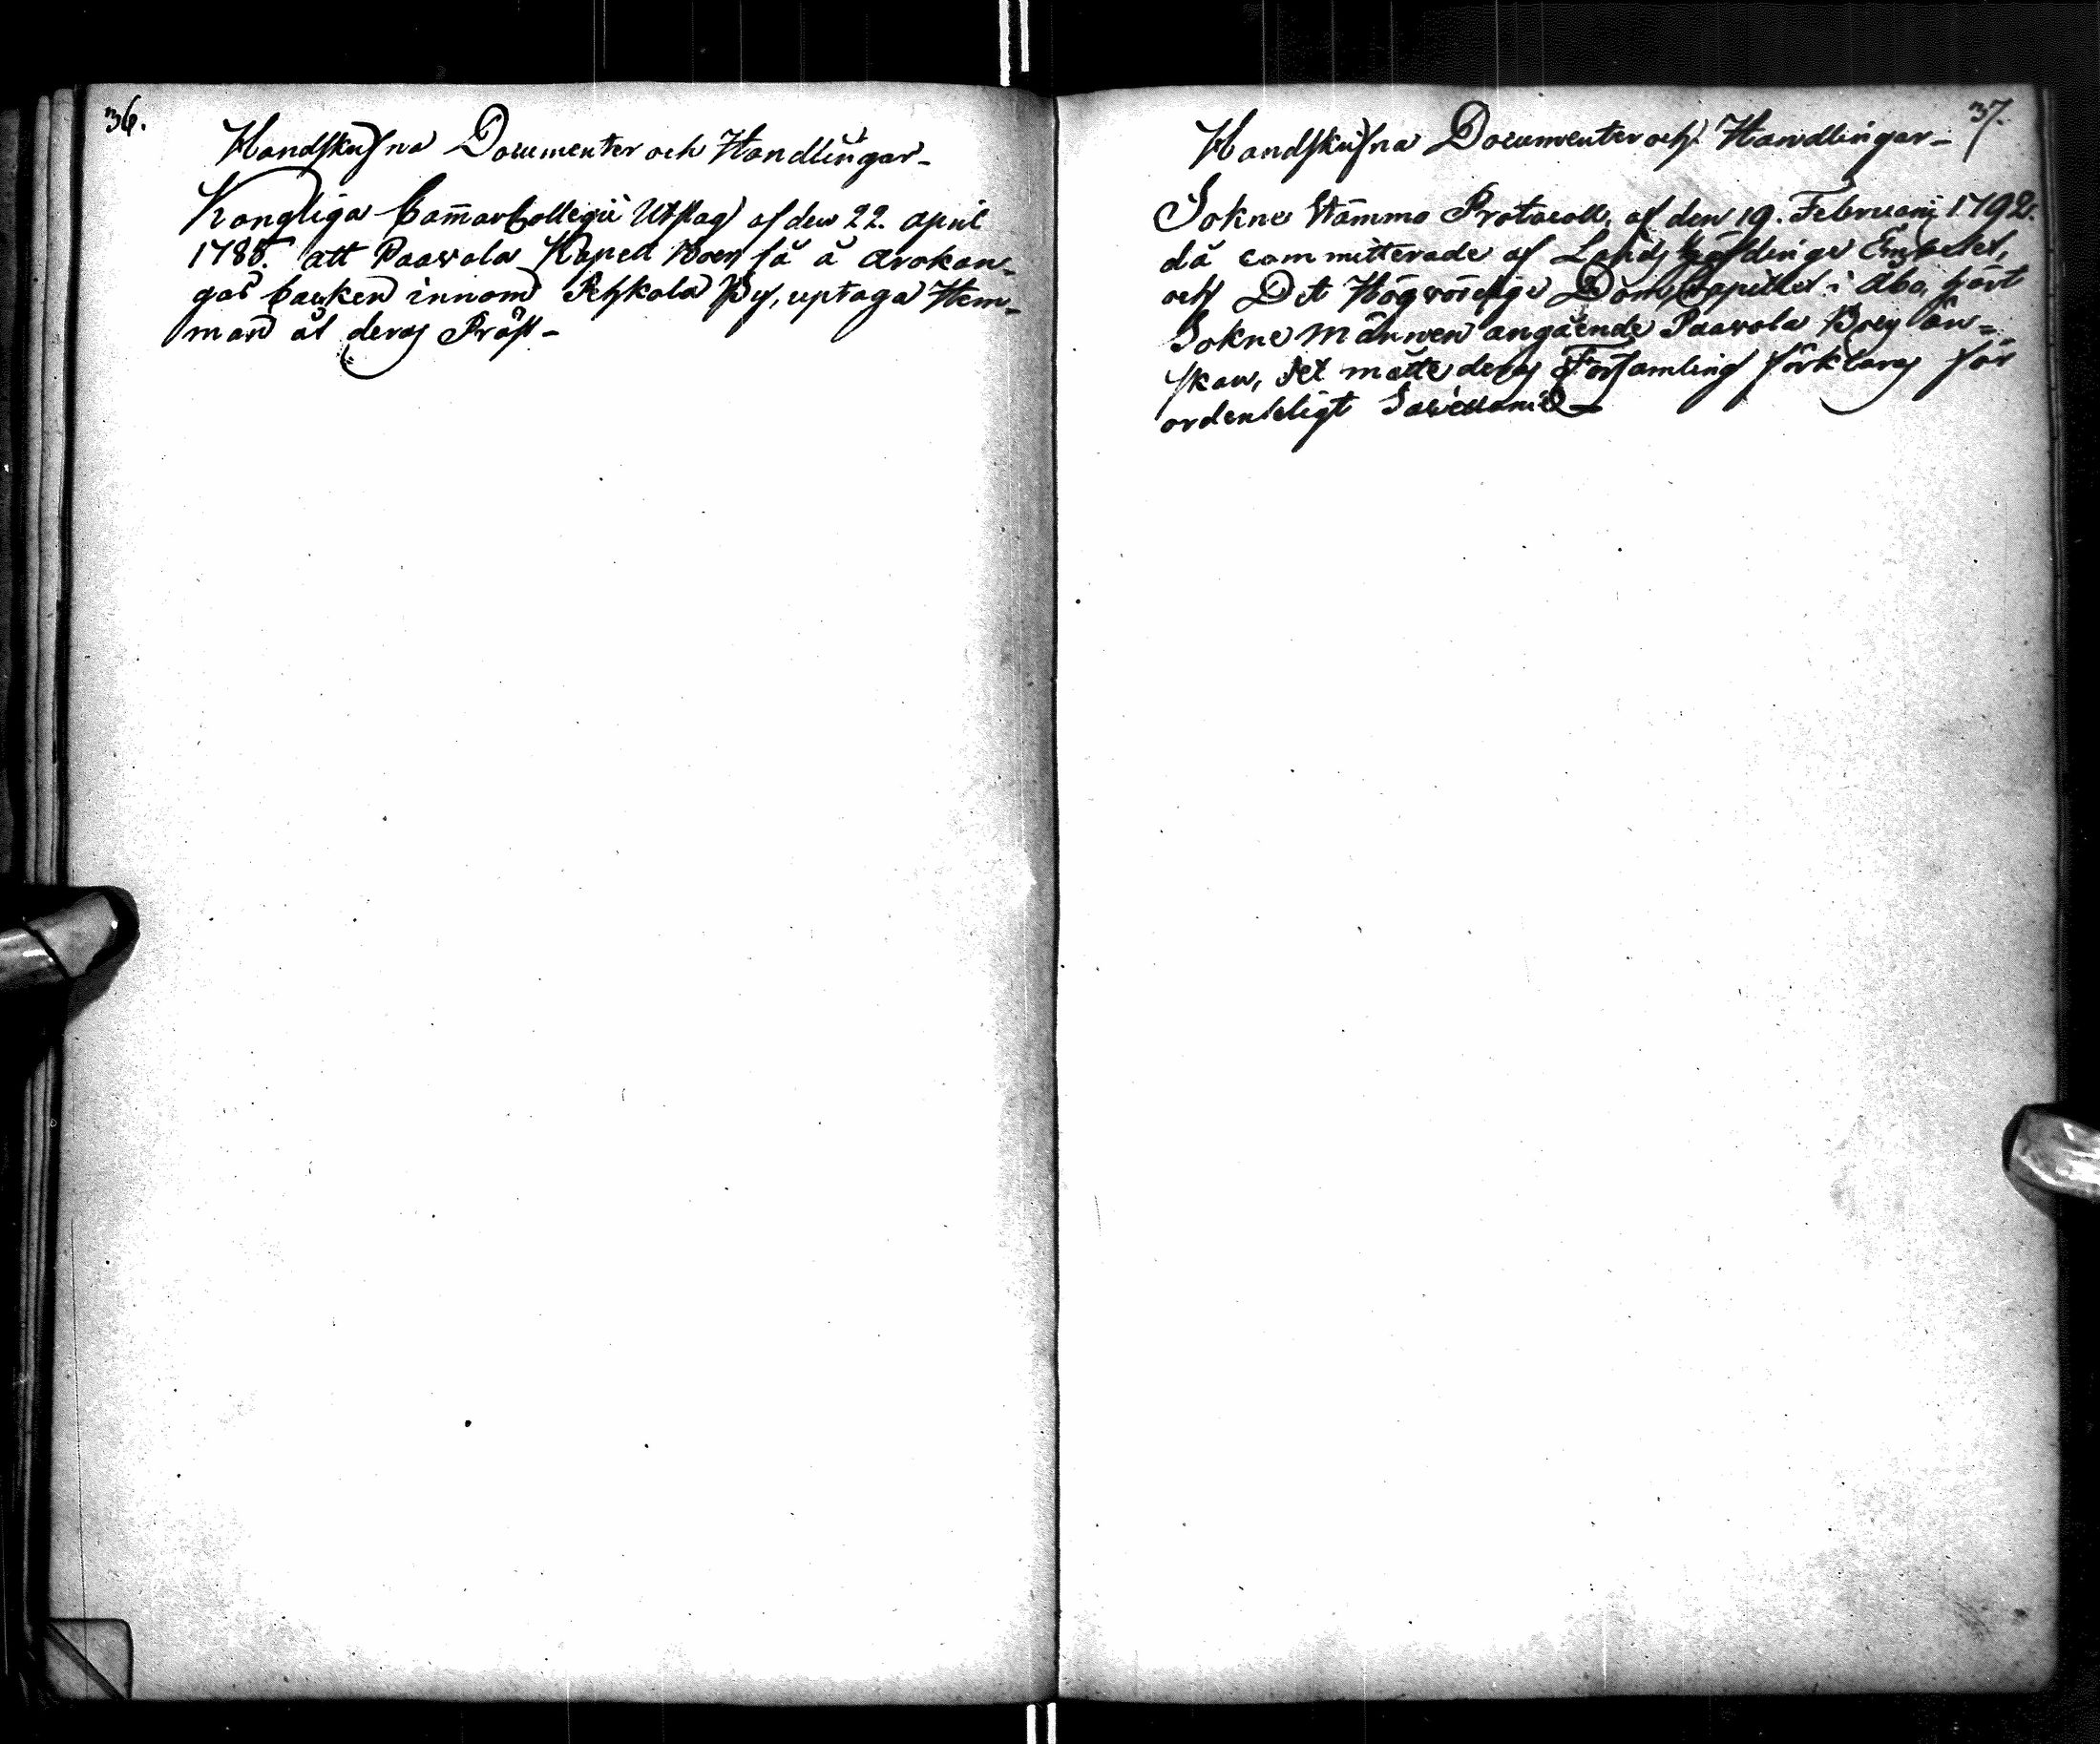 36.
Handskrifna Documenter och Handlingar-
Kongliga Cammar Collegii Utslag af den 22. april
1785. att Paavola Kapell Boer få å arokan-
gas backen innom Pehkola By, uptaga Hem-
man åt deras Präst-
37.
Handskrifna Documenter och Handlingar-
Sokne Stämmo Protocoll, af den 19. Februarij 1792.
då committerade af Landshöfdinge Embetet,
och Det Högvördige Dom Capitlet i Åbo, hört
Sokne Männen angående Paavola Boers ön=
skan, det måtte deras Församling förklaras för
ordenteligt